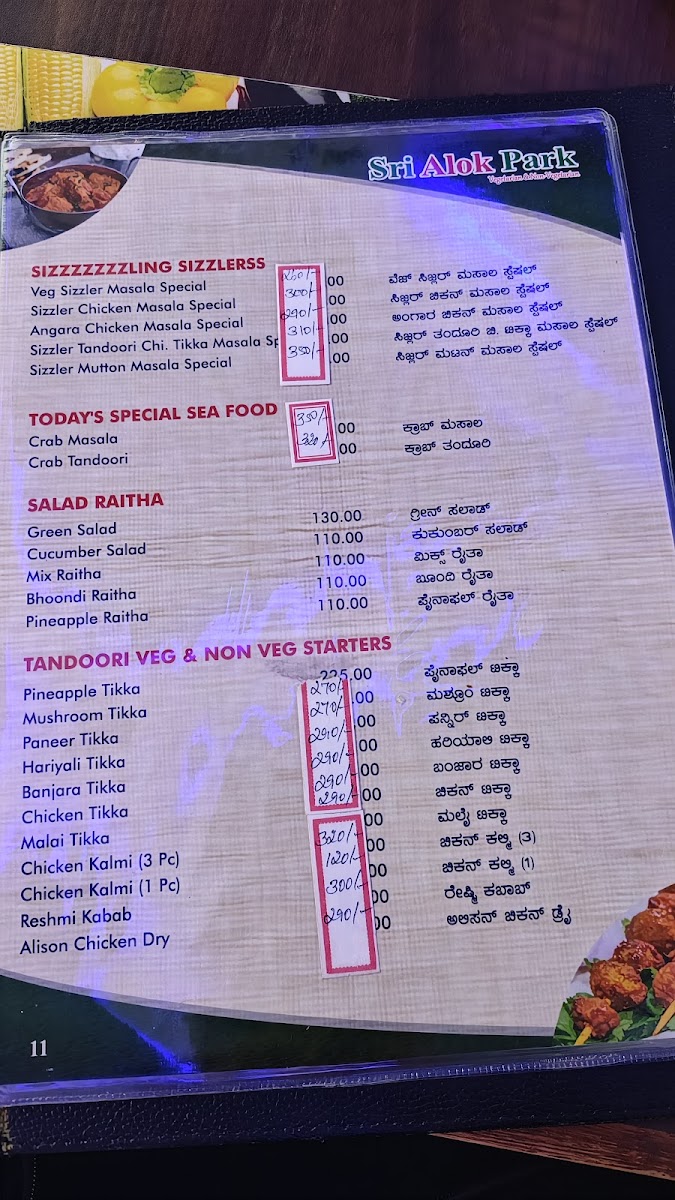 Sri Alok Park
Vegetarian & Non-Vegetarian
SIZZZZZZZLING SIZZLERSS
Veg Sizzler Masala Special 260/- 00 ವೆಜ್ ಸಿಜ್ಲರ್ ಮಸಾಲ ಸ್ಪೆಷಲ್
Sizzler Chicken Masala Special 300/- 00 ಸಿಜ್ಲರ್ ಚಿಕನ್ ಮಸಾಲ ಸ್ಪೆಷಲ್
Angara Chicken Masala Special 290/- 00 ಅಂಗಾರ ಚಿಕನ್ ಮಸಾಲ ಸ್ಪೆಷಲ್
Sizzler Tandoori Chi. Tikka Masala Sp 310/- .00 ಸಿಜ್ಲರ್ ತಂದೂರಿ ಚಿ. ಟಿಕ್ಕಾ ಮಸಾಲ ಸ್ಪೆಷಲ್
Sizzler Mutton Masala Special 350/- .00 ಸಿಜ್ಲರ್ ಮಟನ್ ಮಸಾಲ ಸ್ಪೆಷಲ್
TODAY'S SPECIAL SEA FOOD
Crab Masala 350/- 00 ಕ್ರಾಬ್ ಮಸಾಲ
Crab Tandoori 320/- 00 ಕ್ರಾಬ್ ತಂದೂರಿ
SALAD RAITHA
Green Salad 130.00 ಗ್ರೀನ್ ಸಲಾಡ್
Cucumber Salad 110.00 ಕುಕುಂಬರ್ ಸಲಾಡ್
Mix Raitha 110.00 ಮಿಕ್ಸ್ ರೈತಾ
Bhoondi Raitha 110.00 ಬೂಂದಿ ರೈತಾ
Pineapple Raitha 110.00 ಪೈನಾಫಲ್ ರೈತಾ
TANDOORI VEG & NON VEG STARTERS
Pineapple Tikka 225.00 ಪೈನಾಫಲ್ ಟಿಕ್ಕಾ
Mushroom Tikka 270/- .00 ಮಶ್ರೂಂ ಟಿಕ್ಕಾ
Paneer Tikka 270/- 00 ಪನ್ನಿರ್ ಟಿಕ್ಕಾ
Hariyali Tikka 290/- 00 ಹರಿಯಾಲಿ ಟಿಕ್ಕಾ
Banjara Tikka 290/- 00 ಬಂಜಾರ ಟಿಕ್ಕಾ
Chicken Tikka 290/- 00 ಚಿಕನ್ ಟಿಕ್ಕಾ
Malai Tikka 290/- 00 ಮಲೈ ಟಿಕ್ಕಾ
Chicken Kalmi (3 Pc) 320/- 00 ಚಿಕನ್ ಕಲ್ಮಿ (3)
Chicken Kalmi (1 Pc) 120/- 00 ಚಿಕನ್ ಕಲ್ಮಿ (1)
Reshmi Kabab 300/- 00 ರೇಷ್ಮಿ ಕಬಾಬ್
Alison Chicken Dry 290/- 00 ಅಲಿಸನ್ ಚಿಕನ್ ಡ್ರೈ
11